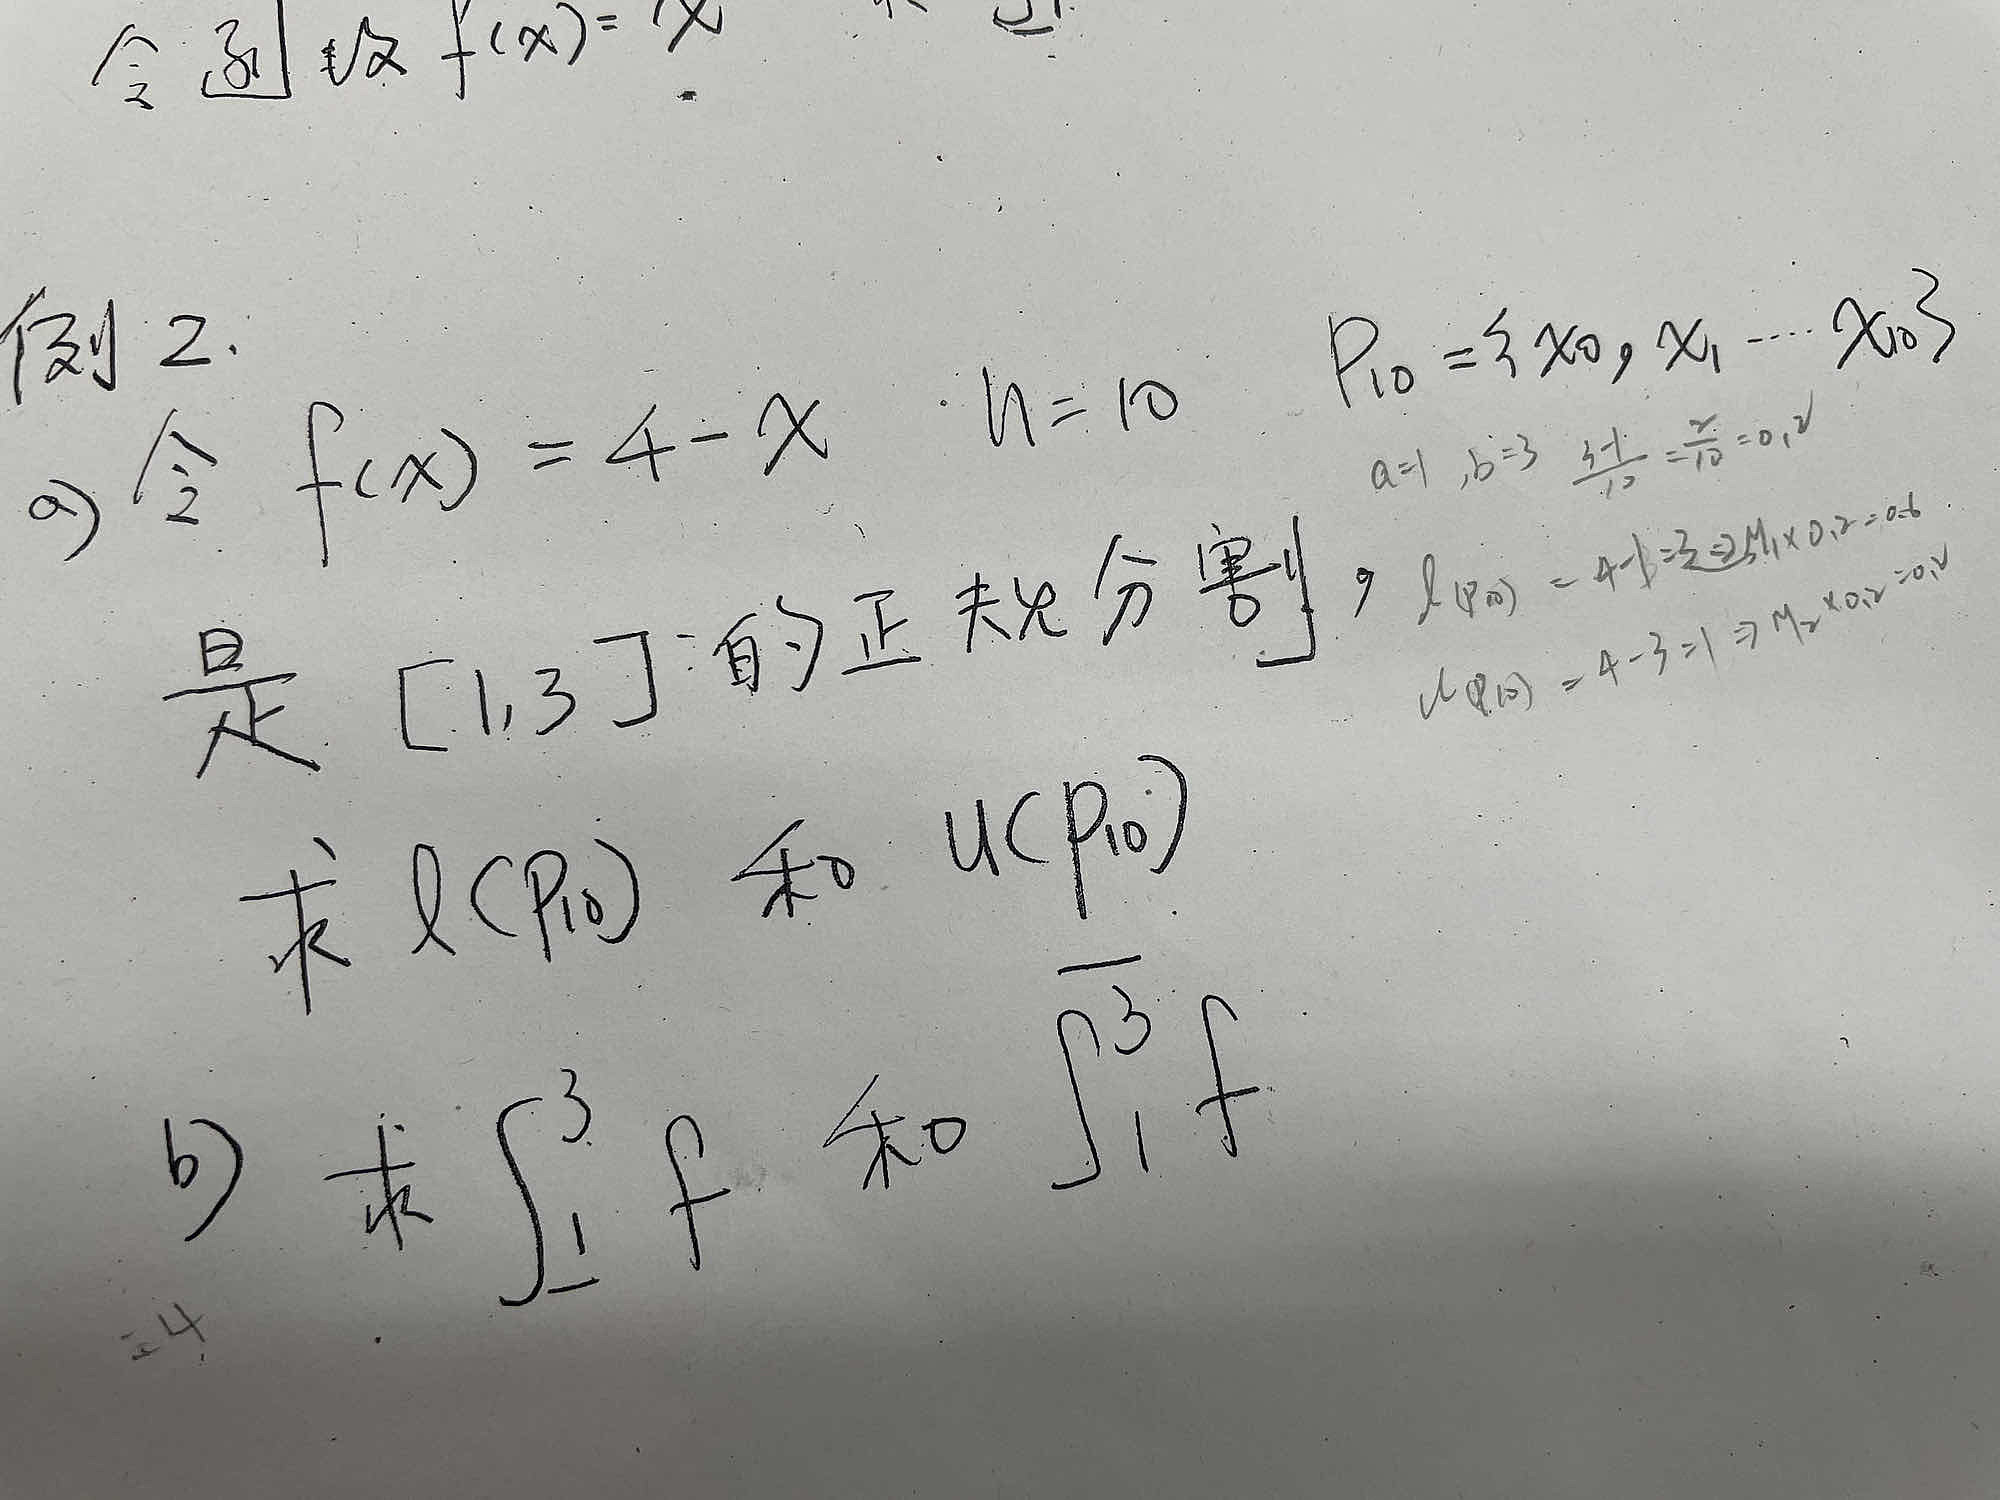 令函数 f(x) = x
例2.
a) 令 f(x) = 4-x n=10 P₁₀ = {x₀, x₁ ···· x₁₀}
a=1, b=3 (3-1)/10 = 2/10 = 0.2
是 [1,3] 的正规分割,
l(P₁₀) = 4-1=3 => M₁×0.2=0.6
u(P₁₀) = 4-3=1 => M₂×0.2=0.2
求 l(P₁₀) 和 u(P₁₀)
b) 求 ∫̲₁³ f 和 ∫̅₁³ f
=4